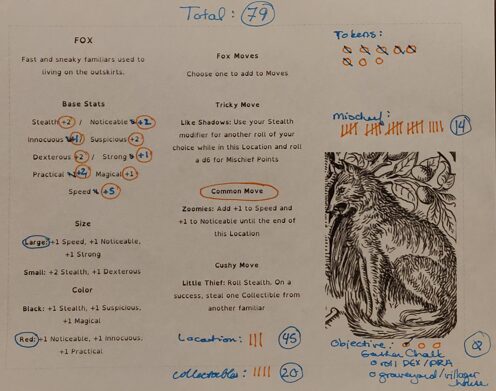 Total: 79
FOX
Fast and sneaky familiars used to
living on the outskirts.
Base Stats
Stealth +2 / Noticeable +2
Innocuous +1 Suspicious +2
Dexterous +2 / Strong +1
Practical +2 Magical +1
Speed +5
Size
Large: +1 Speed, +1 Noticeable,
+1 Strong
Small: +2 Stealth, +1 Dexterous
Color
Black: +1 Stealth, +1 Suspicious,
+1 Magical
Red: +1 Noticeable, +1 Innocuous,
+1 Practical
Fox Moves
Choose one to add to Moves
Tricky Move
Like Shadows: Use your Stealth
modifier for another roll of your
choice while in this Location and roll
a d6 for Mischief Points
Common Move
Zoomies: Add +1 to Speed and
+1 to Noticeable until the end of
this Location
Cushy Move
Little Thief: Roll Stealth. On a
success, steal one Collectible from
another familiar
Location: 45
Collectables: 20
Tokens:
Mischief:
14
Objective:
Gather Chalk
roll DEX/PRA
graveyard/villager
house